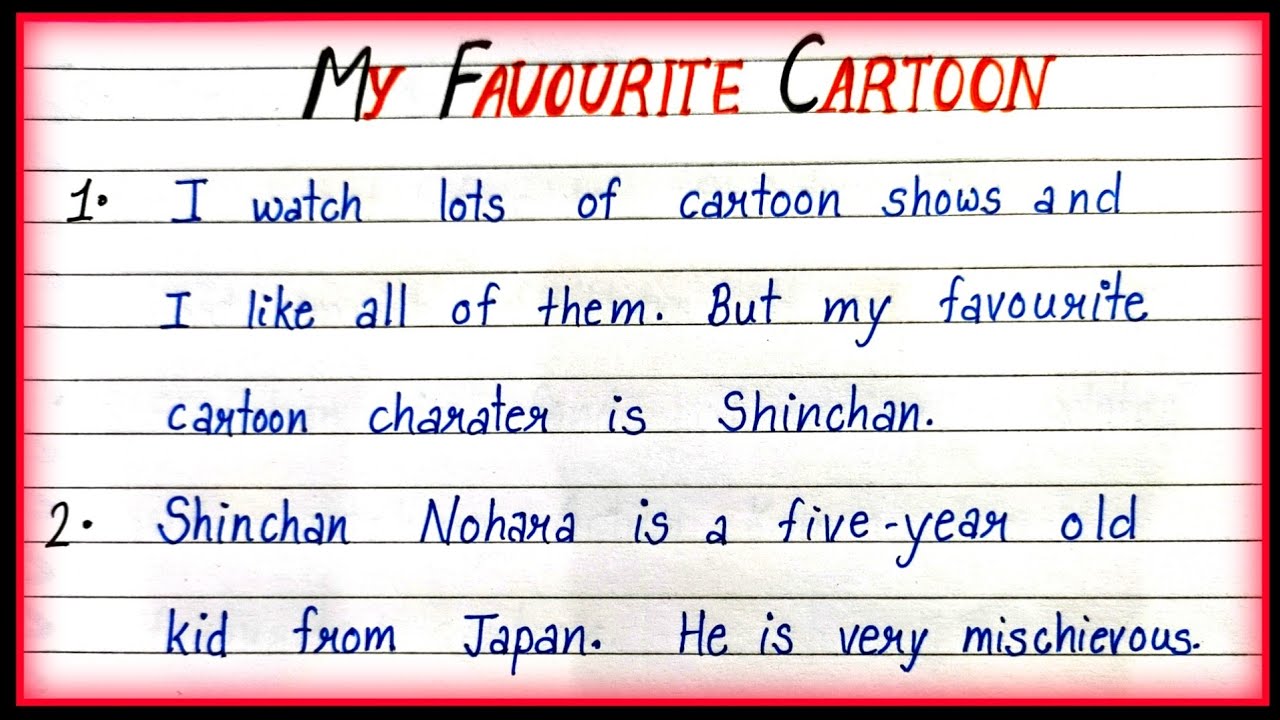 MY FAVOURITE CARTOON
1. I watch lots of cartoon shows and
I like all of them. But my favourite
cartoon charater is Shinchan.
2. Shinchan Nohara is a five-year old
kid from Japan. He is very mischievous.